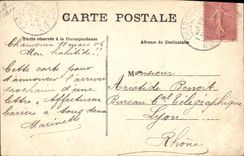 CARTE POSTALE
Partie réservée à la Correspondance
Adresse du Destinataire
Chamonix 11 mars 06
Mon
Cette carte pour
t'annoncer l'arrivée
prochaine d'une
lettre. Affectueux
baisers à tous deux
Marinette
Monsieur
Aristide Benoit
Bureau Cal Télégraphique
Lyon
Rhône